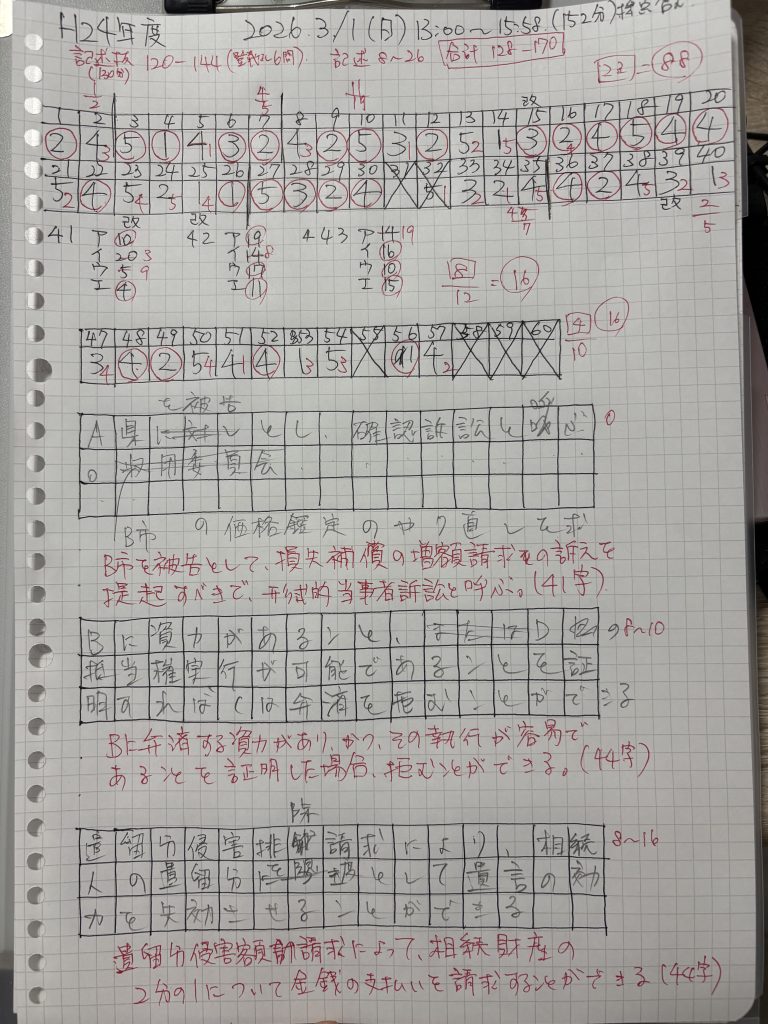 H24年度 2026.3/1(日)13:00〜15:58.(152分)
記述抜 120-144 記述 8〜26 合計 128-170
(120分)
22 - 88
1/2 4/5
1 2 3 4 5 6 7 8 9 10 11 12 13 14 15 16 17 18 19 20
2 43 5 1 41 3 2 43 2 5 31 2 52 15 3 2 4 5 4 4
21 22 23 24 25 26 27 28 29 30 31 32 33 34 35 36 37 38 39 40
52 4 54 25 14 1 5 3 2 4 51 32 24 45 4 2 45 32 13
改 改 改 2/5
41 ア10 42 ア9 43 ア1419
イ203 イ148 イ16
ウ59 ウ17 ウ10
エ4 エ11 エ15
8/12 = 16
47 48 49 50 51 52 53 54 55 56 57 58 59 60
34 4 2 54 41 4 13 53 1 42
4/10 16
を被告
A県 とし、確認訴訟と呼ぶ 0
。収用委員会
B市 の価格鑑定のやり直しを求
B市を被告として、損失補償の増額請求の訴えを
提起すべきで、形式的当事者訴訟と呼ぶ。(41字)
Bに資力があること、またはD 8〜10
担当権実行が可能であることを証
明すればCは弁済を拒むことができる
Bに弁済する資力があり、かつ、その執行が容易で
あることを証明した場合、拒むことができる。(44字)
除
遺留分侵害排 請求により、相続 8〜16
人の遺留分 として遺言の効
力を失効させることができる
遺留分侵害額請求によって、相続財産の
2分の1について金銭の支払いを請求することができる(44字)